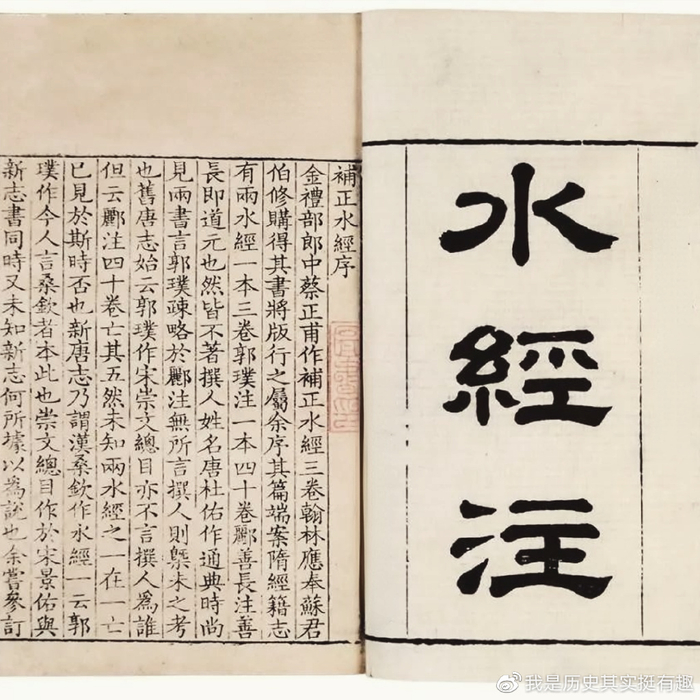 水經注
補正水經序
金禮部郎中蔡正甫作補正水經三卷翰林應奉蘇君
伯修購得其書將版行之屬余序其篇端案隋經籍志
有兩水經一本三卷郭璞注一本四十卷酈善長注善
長即道元也然皆不著撰人姓名唐杜佑作通典時尚
見兩書言郭璞疎略於酈注無所言撰人則槩未之考
也舊唐志始云郭璞作宋崇文總目亦不言撰人爲誰
但云酈注四十卷亡其五然未知兩水經之一在一亡
已見於斯時否也新唐志乃謂漢桑欽作水經一云郭
璞作今人言桑欽者本此也崇文總目作於宋景佑與
新志書同時又未知新志何所據以爲說也余嘗參訂
@我是历史其实挺有趣